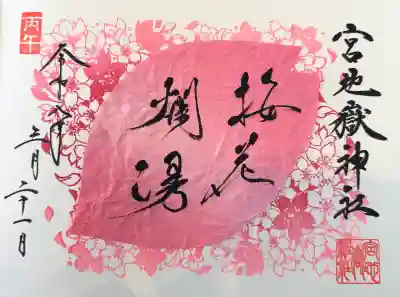 宮地嶽神社
桜花
爛漫
丙午
令和八年
三月二十一日